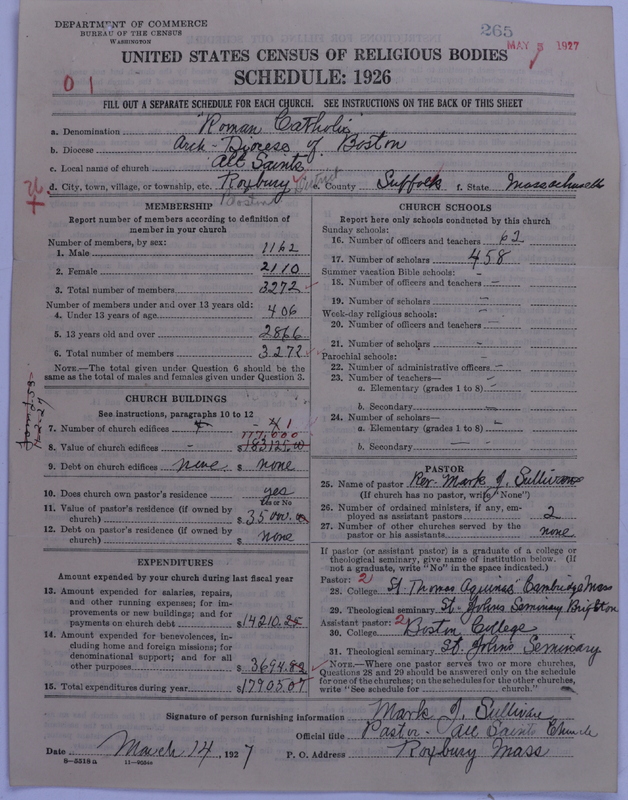 DEPARTMENT OF COMMERCE
BUREAU OF THE CENSUS
WASHINGTON
265
MAY 5 1927
UNITED STATES CENSUS OF RELIGIOUS BODIES
SCHEDULE: 1926
0 1
FILL OUT A SEPARATE SCHEDULE FOR EACH CHURCH. SEE INSTRUCTIONS ON THE BACK OF THIS SHEET
a. Denomination Roman Catholic
b. Diocese Arch-Diocese of Boston
c. Local name of church All Saints
d. City, town, village, or township, etc. Roxbury District e. County Suffolk f. State Massachusetts
Boston
MEMBERSHIP
Report number of members according to definition of
member in your church
Number of members, by sex:
1. Male 1162
2. Female 2110
3. Total number of members 3272
Number of members under and over 13 years old:
4. Under 13 years of age 406
5. 13 years old and over 2866
6. Total number of members 3272
NOTE.—The total given under Question 6 should be
same as the total of males and females given under Question 3.
CHURCH BUILDINGS
See instructions, paragraphs 10 to 12
7. Number of church edifices 1
177,000
8. Value of church edifices - $183125.00
9. Debt on church edifices none $ none
10. Does church own pastor's residence yes
Yes or No
11. Value of pastor's residence (if owned by
church) $35000.00
12. Debt on pastor's residence (if owned by
church) $ none
EXPENDITURES
Amount expended by your church during last fiscal year
13. Amount expended for salaries, repairs,
and other running expenses; for im-
provements or new buildings; and for
payments on church debt $14210.25
14. Amount expended for benevolences, in-
cluding home and foreign missions; for
denominational support; and for all
other purposes $3694.82
15. Total expenditures during year $17905.07
CHURCH SCHOOLS
Report here only schools conducted by this church
Sunday schools:
16. Number of officers and teachers 62
17. Number of scholars 458
Summer vacation Bible schools: -
18. Number of officers and teachers -
19. Number of scholars -
Week-day religious schools: -
20. Number of officers and teachers -
21. Number of scholars -
Parochial schools: -
22. Number of administrative officers -
23. Number of teachers—
a. Elementary (grades 1 to 8) -
b. Secondary -
24. Number of scholars—
a. Elementary (grades 1 to 8) -
b. Secondary -
PASTOR
25. Name of pastor Rev. Mark J. Sullivan
(If church has no pastor, write "None")
26. Number of ordained ministers, if any, em-
ployed as assistant pastors 2
27. Number of other churches served by the
pastor or his assistants none
If pastor (or assistant pastor) is a graduate of a college or
theological seminary, give name of institution below. (If
not a graduate, write "No" in the space indicated.)
Pastor: 2
28. College St. Thomas Aquinas Cambridge Mass
29. Theological seminary St. Johns Seminary Brighton
Assistant pastor: 2
30. College Boston College
31. Theological seminary St. Johns Seminary
NOTE.—Where one pastor serves two or more churches,
Questions 28 and 29 should be answered only on the schedule
for one of the churches; on the schedules for the other churches,
write "See schedule for ____ church."
Signature of person furnishing information Mark J. Sullivan
Official title Pastor - All Saints Church
Date March 14, 1927 P. O. Address Roxbury Mass
8-5518a